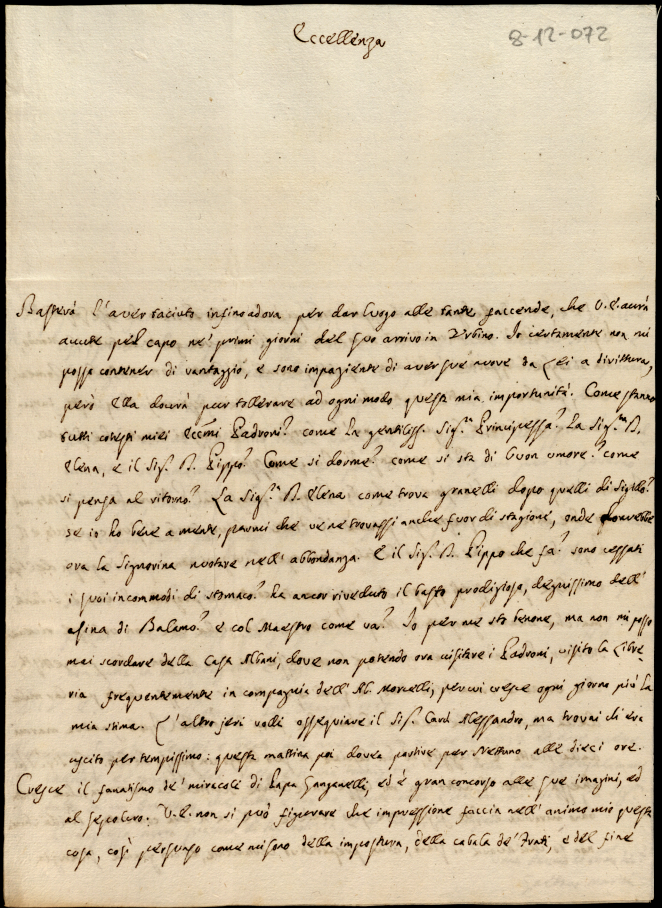 Eccellenza
8-12-072
Basterà l'aver taciuto infinoadora per dar luogo alle tante faccende, che V.E. avrà
avute pel capo ne' primi giorni del suo arrivo in Urbino. Io certamente non mi
posso contener di vantaggio, e sono impaziente di aver sue nuove da Lei a dirittura,
però Ella dovrà pur tollerare ad ogni modo questa mia importunità. Come stanno
tutti cotesti miei Eccmi Padroni? come La gentiliss. Sig.ra Principessa? La Sig.ra D.
Elena, e il Sig. D. Pippo? Come si dorme? come si sta di buon umore? come
si pensa al ritorno? La Sig.ra D. Elena come trova granelli dopo quelli di Sigillo?
se io ho bene a mente, parmi che ve ne trovassi anche fuor di stagione, onde dovrebbe
ora la Signorina nuotare nell' abbondanza. E il Sig. D. Pippo che fa? sono cessati
i suoi incommodi di stomaco? ha ancor riveduto il basto prodigioso, degnissimo dell'
asina di Balamo? e col Maestro come va? Io per me sto benone, ma non mi posso
mai scordare della Casa Albani, dove non potendo ora visitare i Padroni, visito la Libre-
ria frequentemente in compagnia dell' Ab. Morcelli, per cui cresce ogni giorno più la
mia stima. L'altro jeri volli ossequiare il Sig. Card. Alessandro, ma trovai ch'era
uscito per tempissimo: questa mattina poi dovea partire per Nettuno alle dieci ore.
Cresce il fanatismo de' miracoli di Papa Ganganelli, ed è gran concorso alle sue imagini, ed
al sepolcro. V.E. non si può figurare che impressione faccia nell' animo mio questa
cosa, così persuaso come mi sono della impostura, della cabala de' Frati, e del fine